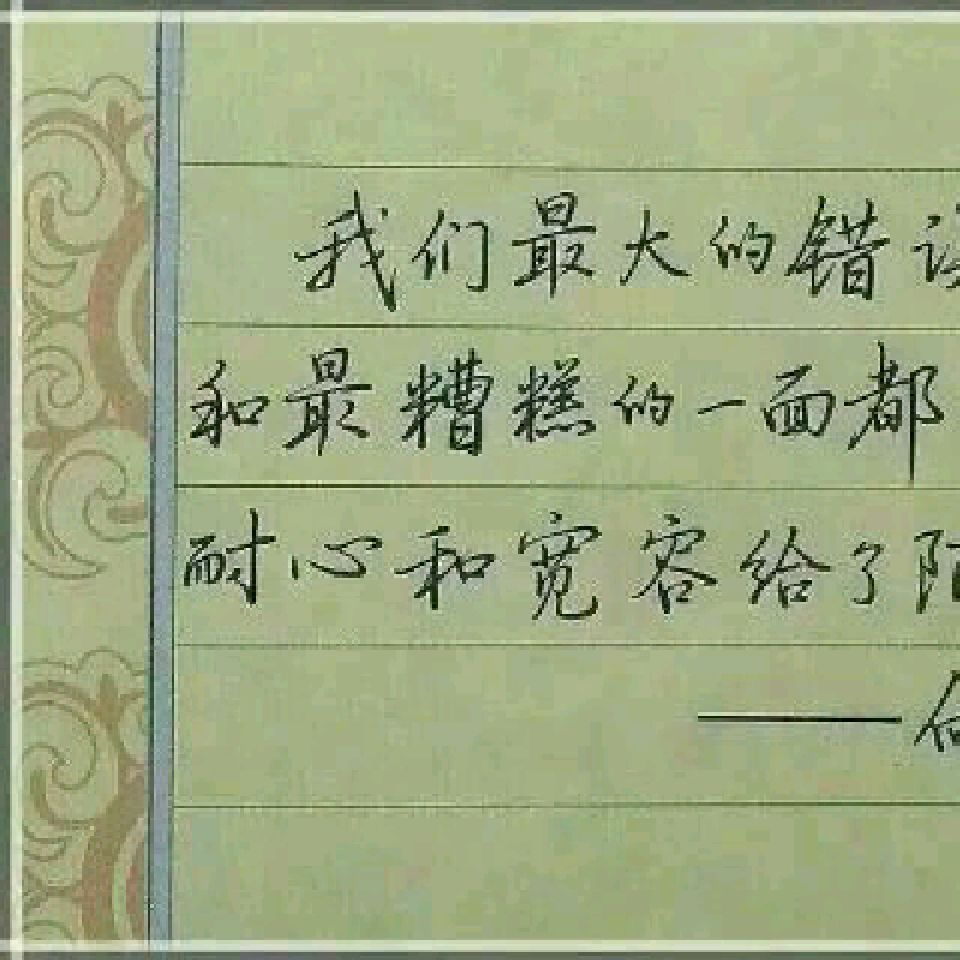 我们最大的错
和最糟糕的一面都
耐心和宽容给了
——